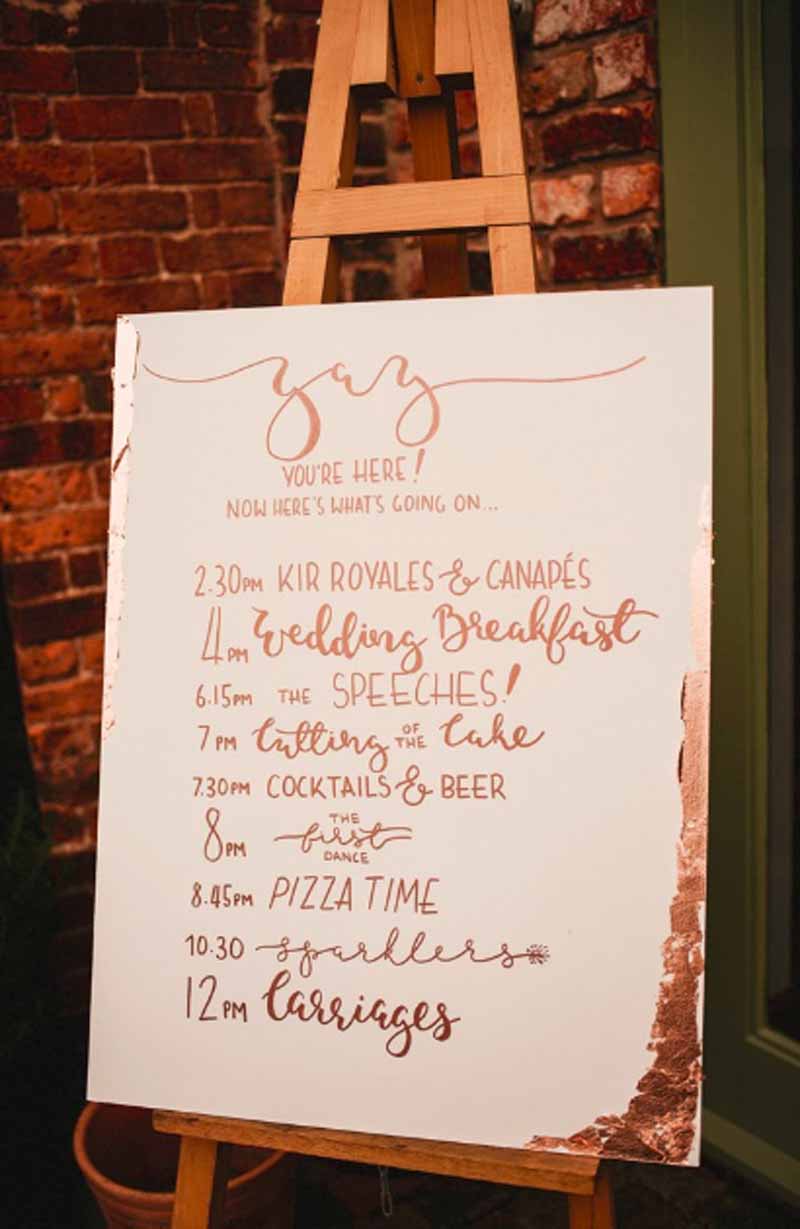 yay
YOU'RE HERE!
NOW HERE'S WHAT'S GOING ON...
2.30PM KIR ROYALES & CANAPÉS
4PM Wedding Breakfast
6.15PM THE SPEECHES!
7PM Cutting OF THE Cake
7.30PM COCKTAILS & BEER
8PM THE first DANCE
8.45PM PIZZA TIME
10.30 sparklers
12PM Carriages